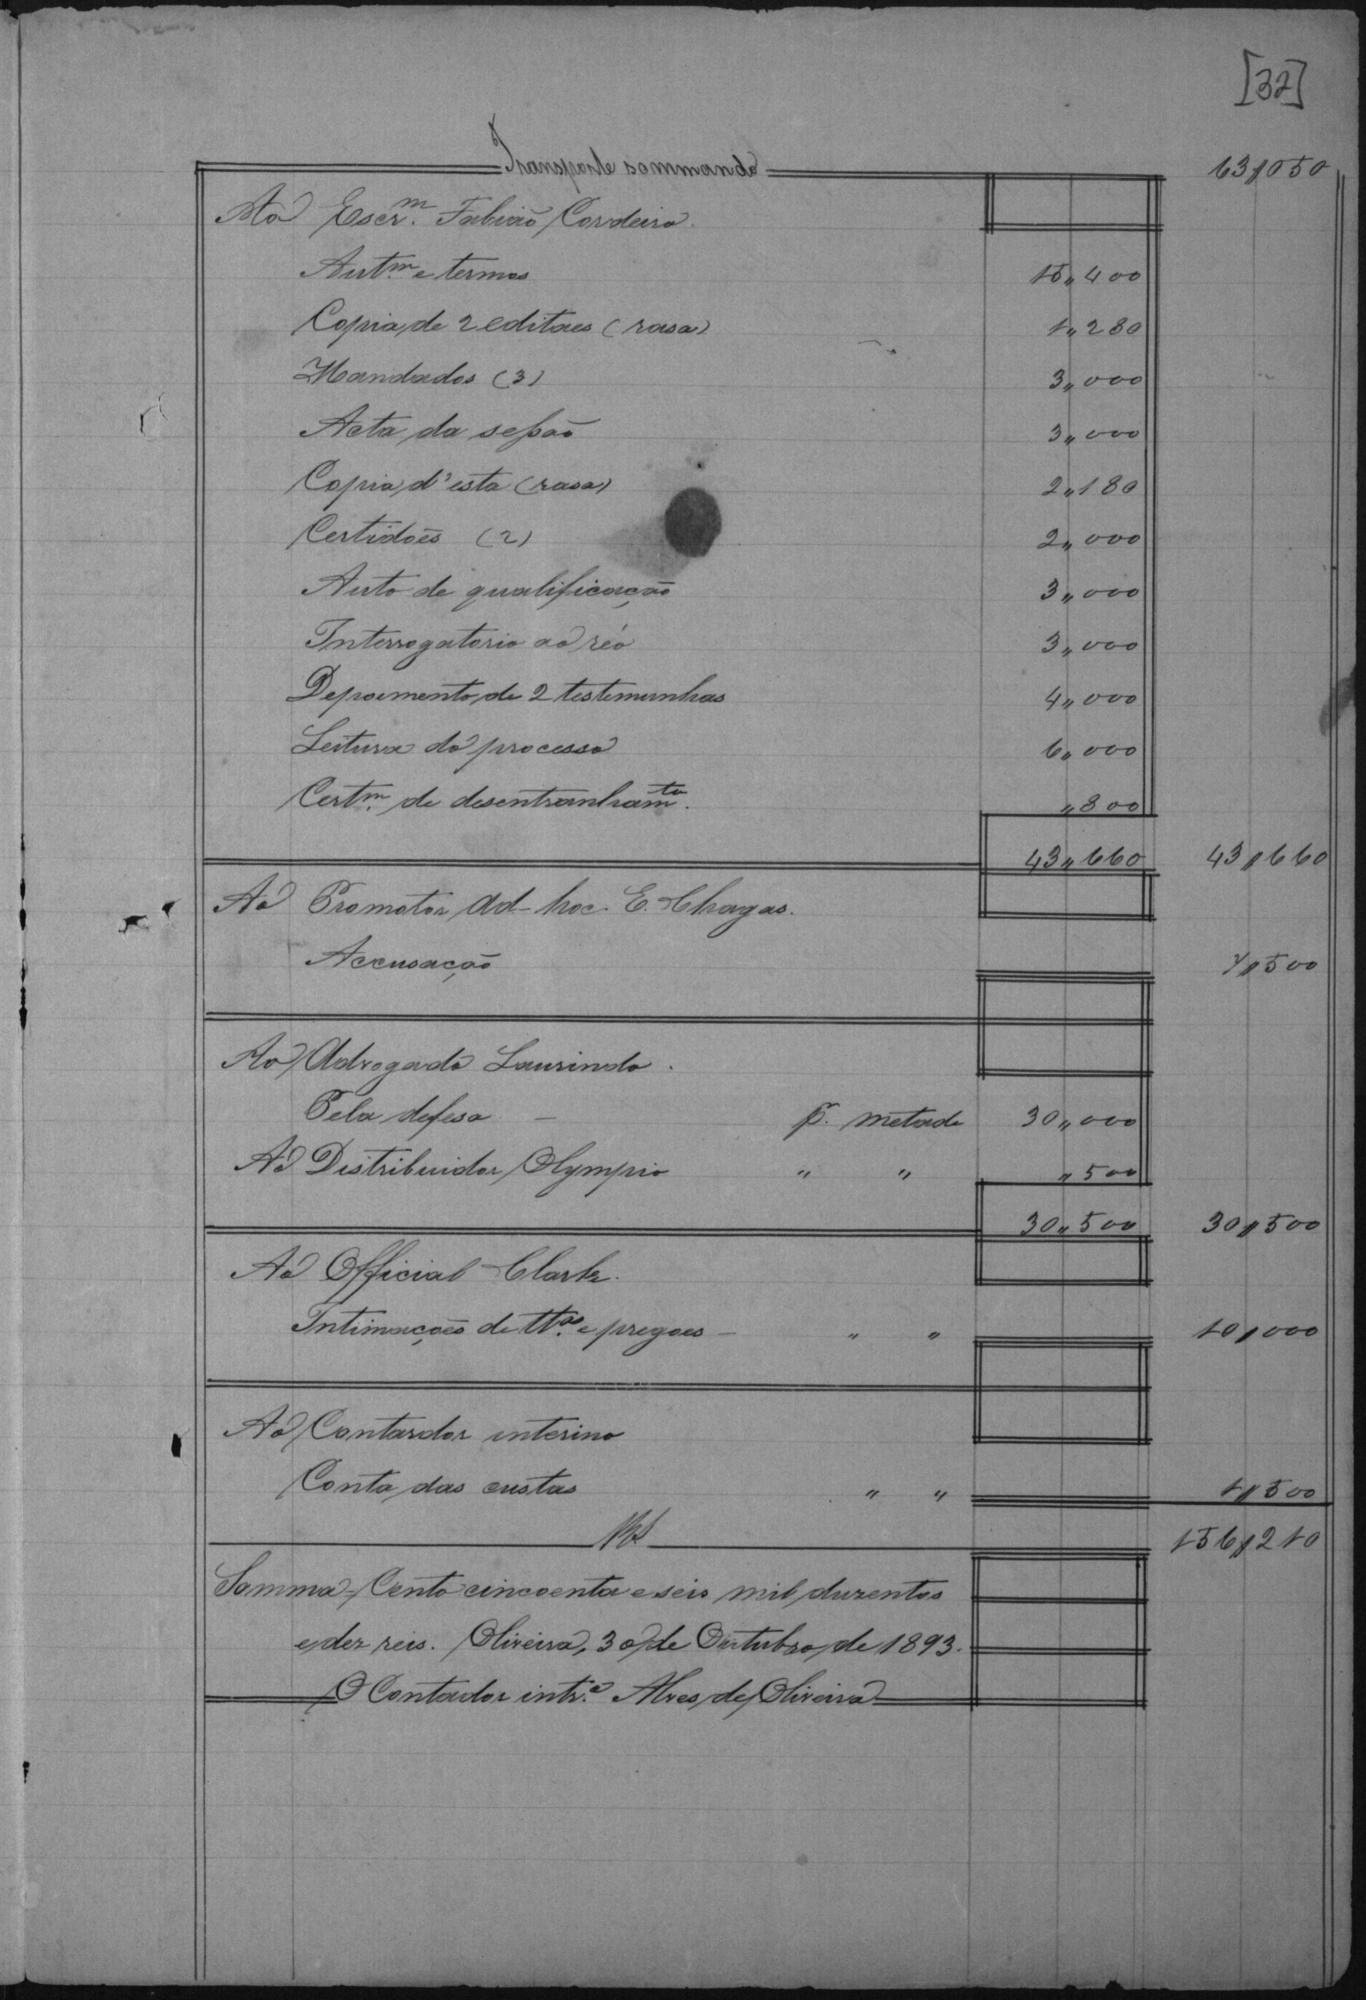 [32]
Transporte sommando 63$050
Ao Escr.m Fabião Cordeiro.
Aut.m e termos 15,,400
Copia de 2 editaes (rasa) 1,,280
Mandados (3) 3,,000
Acta da sessão 3,,000
Copia d'esta (rasa) 2,,180
Certidões (2) 2,,000
Auto de qualificação 3,,000
Interrogatorio ao réo 3,,000
Depoimento de 2 testemunhas 4,,000
Leitura do processo 6,,000
Cert.m de desentranham.to ,,800
43,,660 43$660
Ao Promotor Ad-hoc. E. Chagas.
Accusação 7$500
Ao Advogado Laurindo.
Pela defesa — p. metade 30,,000
Ao Distribuidor Olympio ,, ,, ,,500
30,,500 30$500
Ao Official Clark.
Intimações de ttas e pregoes — ,, ,, 10$000
Ao Contador interino
Conta das custas ,, ,, 1$500
Rs 156$210
Somma - Cento cincoenta e seis mil duzentos
e dez reis. Oliveira, 30 de Outubro de 1893.
O Contador intr.o Alves de Oliveira